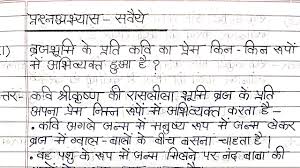 प्रश्नअभ्यास - सवैये
1) ब्रजभूमि के प्रति कवि का प्रेम किन-किन रूपों
में अभिव्यक्त हुआ है ?
त्तर- कवि श्रीकृष्ण की रासलीला भूमि ब्रज के प्रति
अपना प्रेम निम्न रूपों में अभिव्यक्त करता है -
• कवि अगले जन्म में मनुष्य रूप में जन्म लेकर
ब्रज में ग्वाल-बालों के बीच बसना चाहता है।
• वह पशु के रूप में जन्म मिलने पर नंद बाबा की